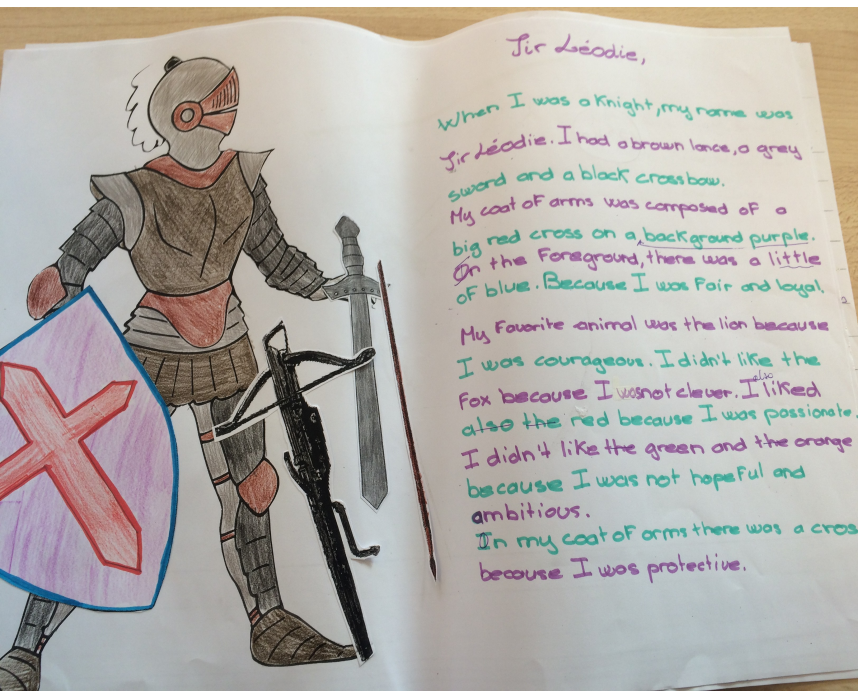 Sir Léodie,
When I was a Knight, my name was
Sir Léodie. I had a brown lance, a grey
sword and a black crossbow.
My coat of arms was composed of a
big red cross on a background purple.
On the Foreground, there was a little
of blue. Because I was Fair and loyal.
My Favorite animal was the lion because
I was courageous. I didn't like the
Fox because I was not clever. I also liked
also the red because I was passionate.
I didn't like the green and the orange
because I was not hopeful and
ambitious.
In my coat of arms there was a cross
because I was protective.